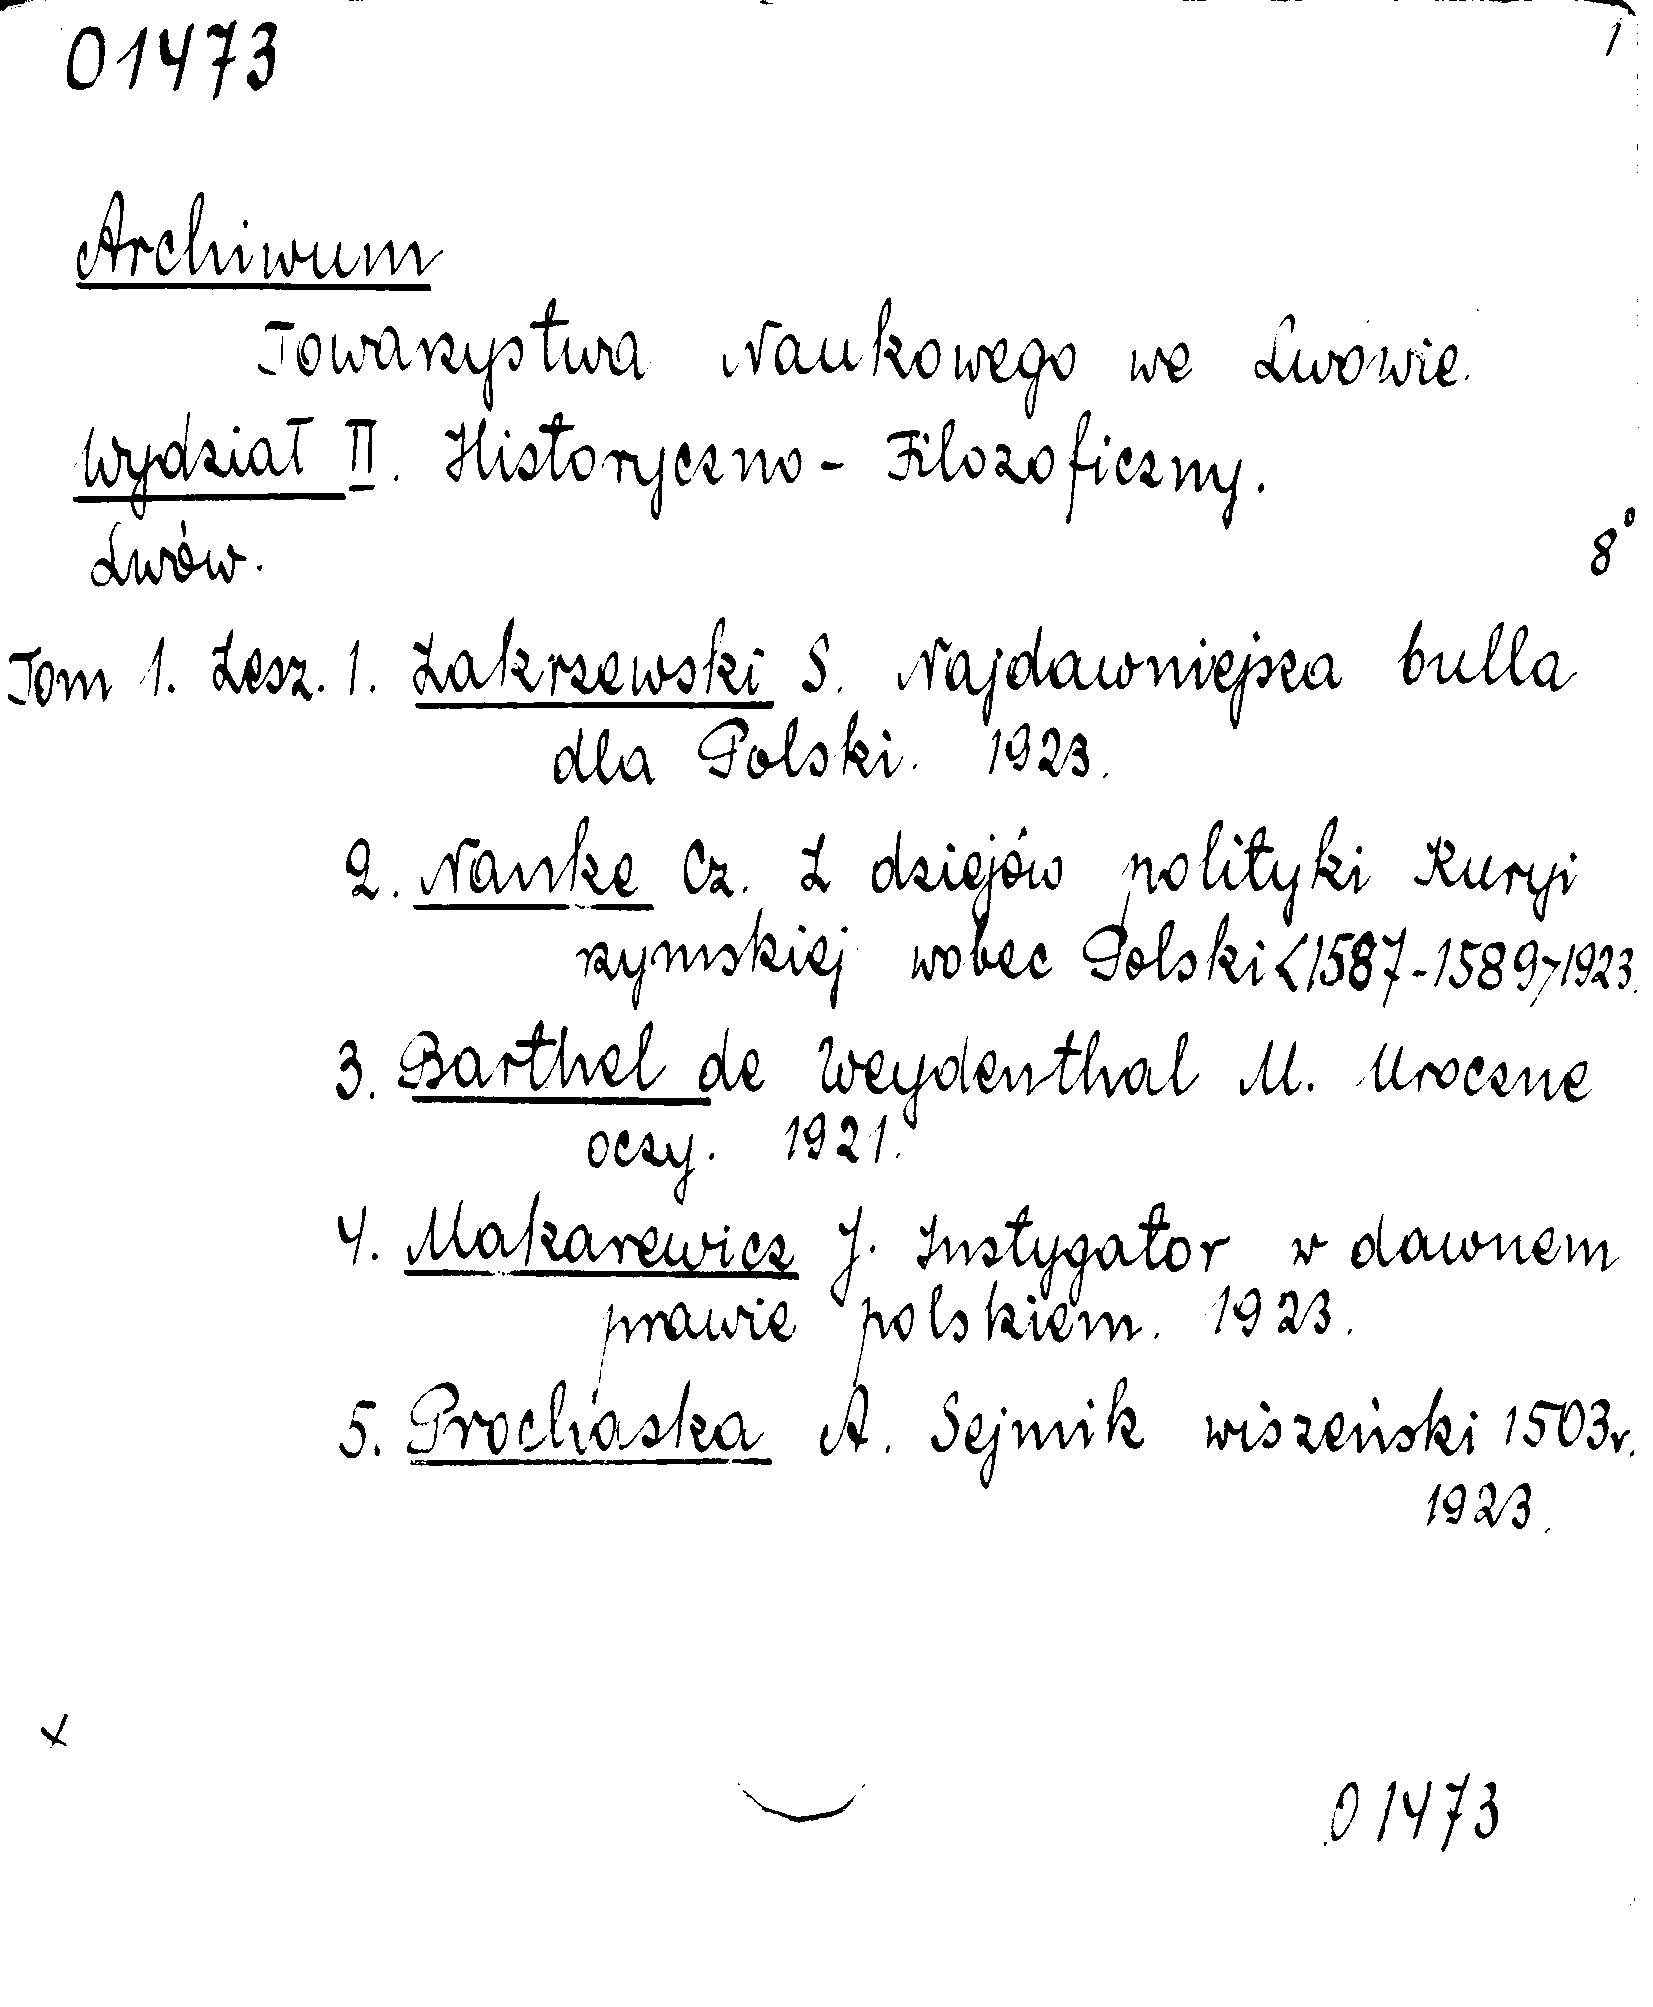 01473 1
Archiwum
Towarzystwa Naukowego we Lwowie.
Wydział II. Historyczno-Filozoficzny.
Lwów. 8°
Tom 1. Zesz. 1. Zakrzewski S. Najdawniejsza bulla
dla Polski. 1923.
2. Nanke Cz. Z dziejów polityki Kuryi
rzymskiej wobec Polski <1587-1589> 1923.
3. Barthel de Weydenthal M. Uroczne
oczy. 1921.
4. Makarewicz J. Instygator w dawnem
prawie polskiem. 1923.
5. Prochaska A. Sejmik wiszeński 1503r.
1923.
x
01473